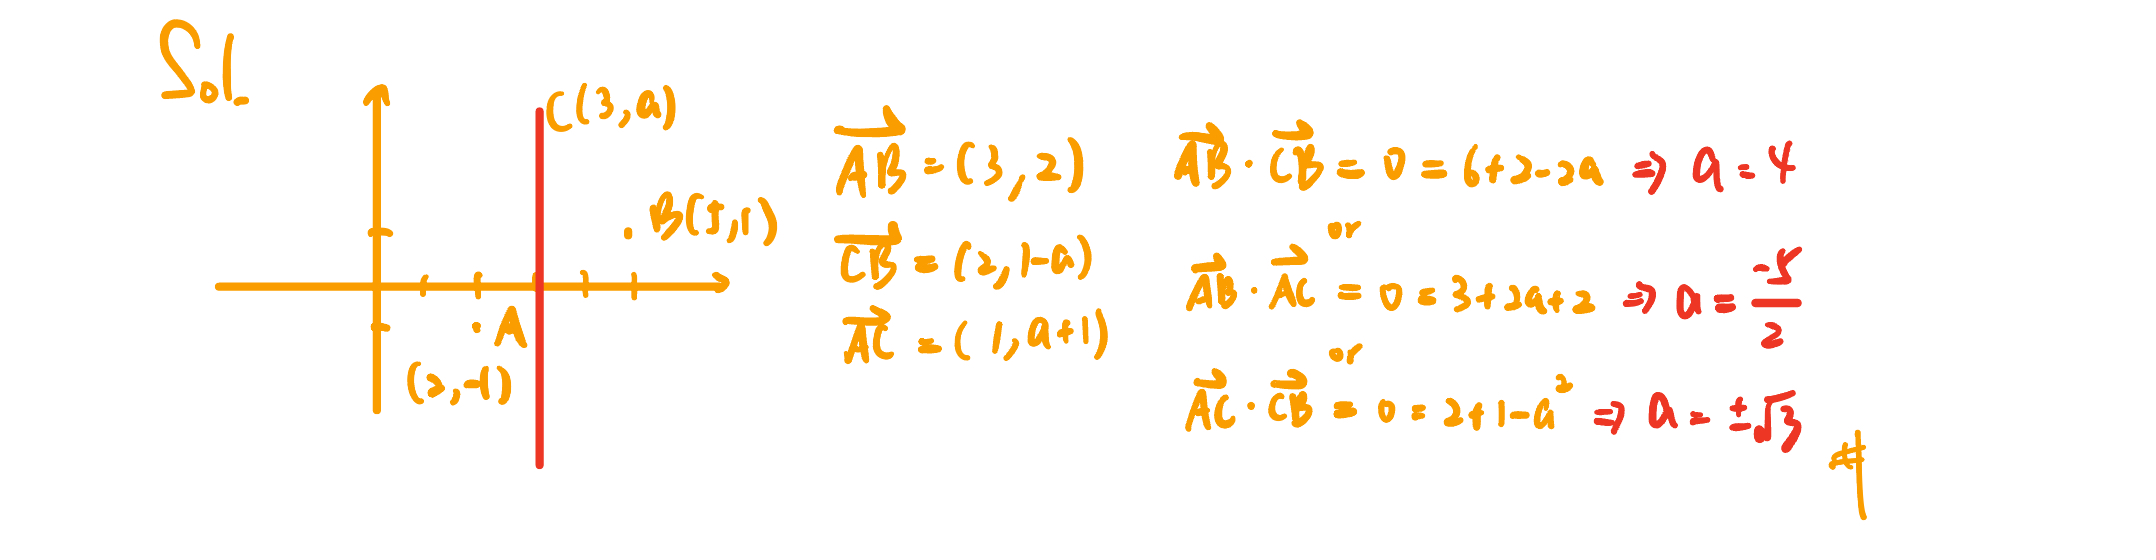 Sol.
C(3,a)
B(5,1)
A
(2,-1)
$\overrightarrow{AB}=(3,2)$
$\overrightarrow{CB}=(2,1-a)$
$\overrightarrow{AC}=(1,a+1)$
$\overrightarrow{AB}\cdot\overrightarrow{CB}=0=6+2-2a \Rightarrow a=4$
or
$\overrightarrow{AB}\cdot\overrightarrow{AC}=0=3+2a+2 \Rightarrow a=\frac{-5}{2}$
or
$\overrightarrow{AC}\cdot\overrightarrow{CB}=0=2+1-a^2 \Rightarrow a=\pm\sqrt{3}$
#